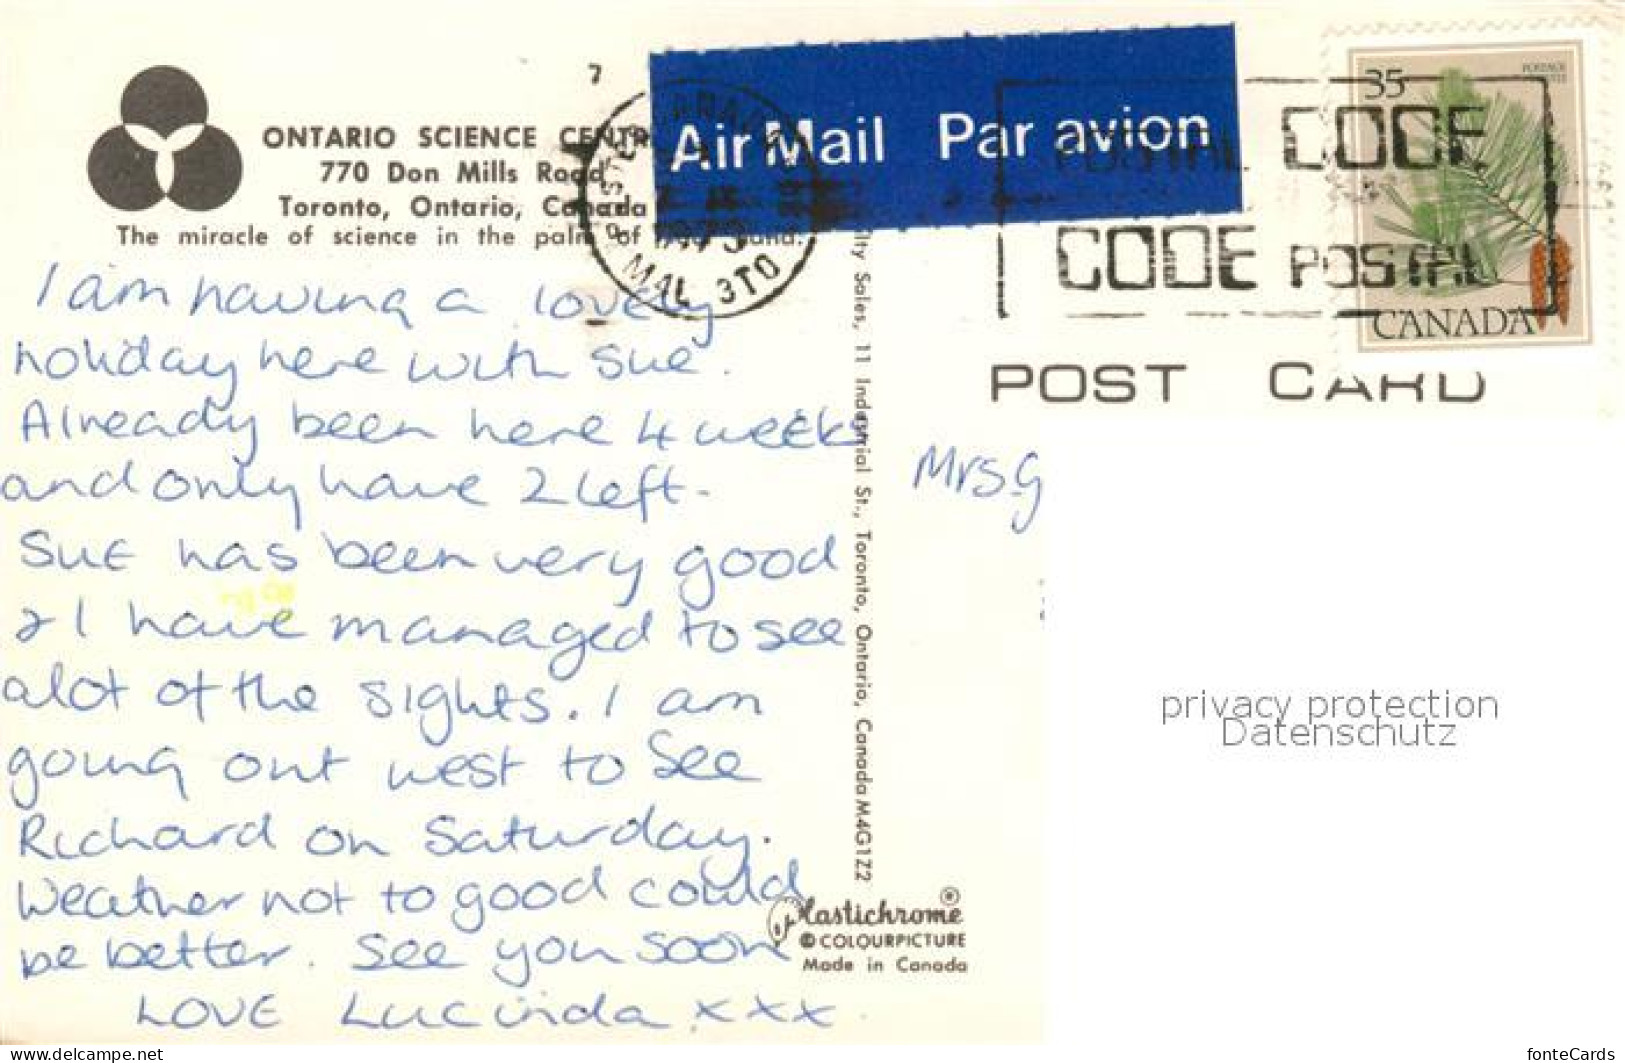 ONTARIO SCIENCE CENTR
770 Don Mills Road
Toronto, Ontario, Canada
The miracle of science in the palm of hand.
Air Mail Par avion
1979
M4L 3T0
POSTAL CODE
CODE POSTAL
35
POSTAGE
CANADA
POST CARD
I am having a lovely
holiday here with Sue.
Already been here 4 weeks
and only have 2 left.
Sue has been very good
& I have managed to see
alot of the sights. I am
going out west to see
Richard on Saturday.
Weather not to good could
be better. See you soon
LOVE Lucinda xxx
Mrs. G
lty Sales, 11 Industrial St., Toronto, Ontario, Canada M4G1Z2
Plastichrome ®
© COLOURPICTURE
Made in Canada
privacy protection
Datenschutz
https://www.delcampe.net
fonteCards